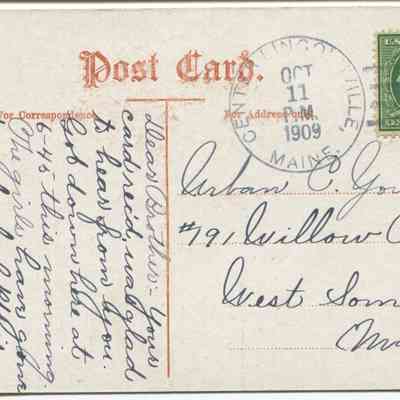 Post Card.
For Correspondence.
For Address only.
CENTER LINCOLNVILLE,
OCT
11
P.M
1909
MAINE.
Dear Brother:- Your
card rec'd, was glad
to hear from you.
Got down here at
6-45 this morning
The girls have gone
Urban C. You
#791 Willow
West Som
Ma